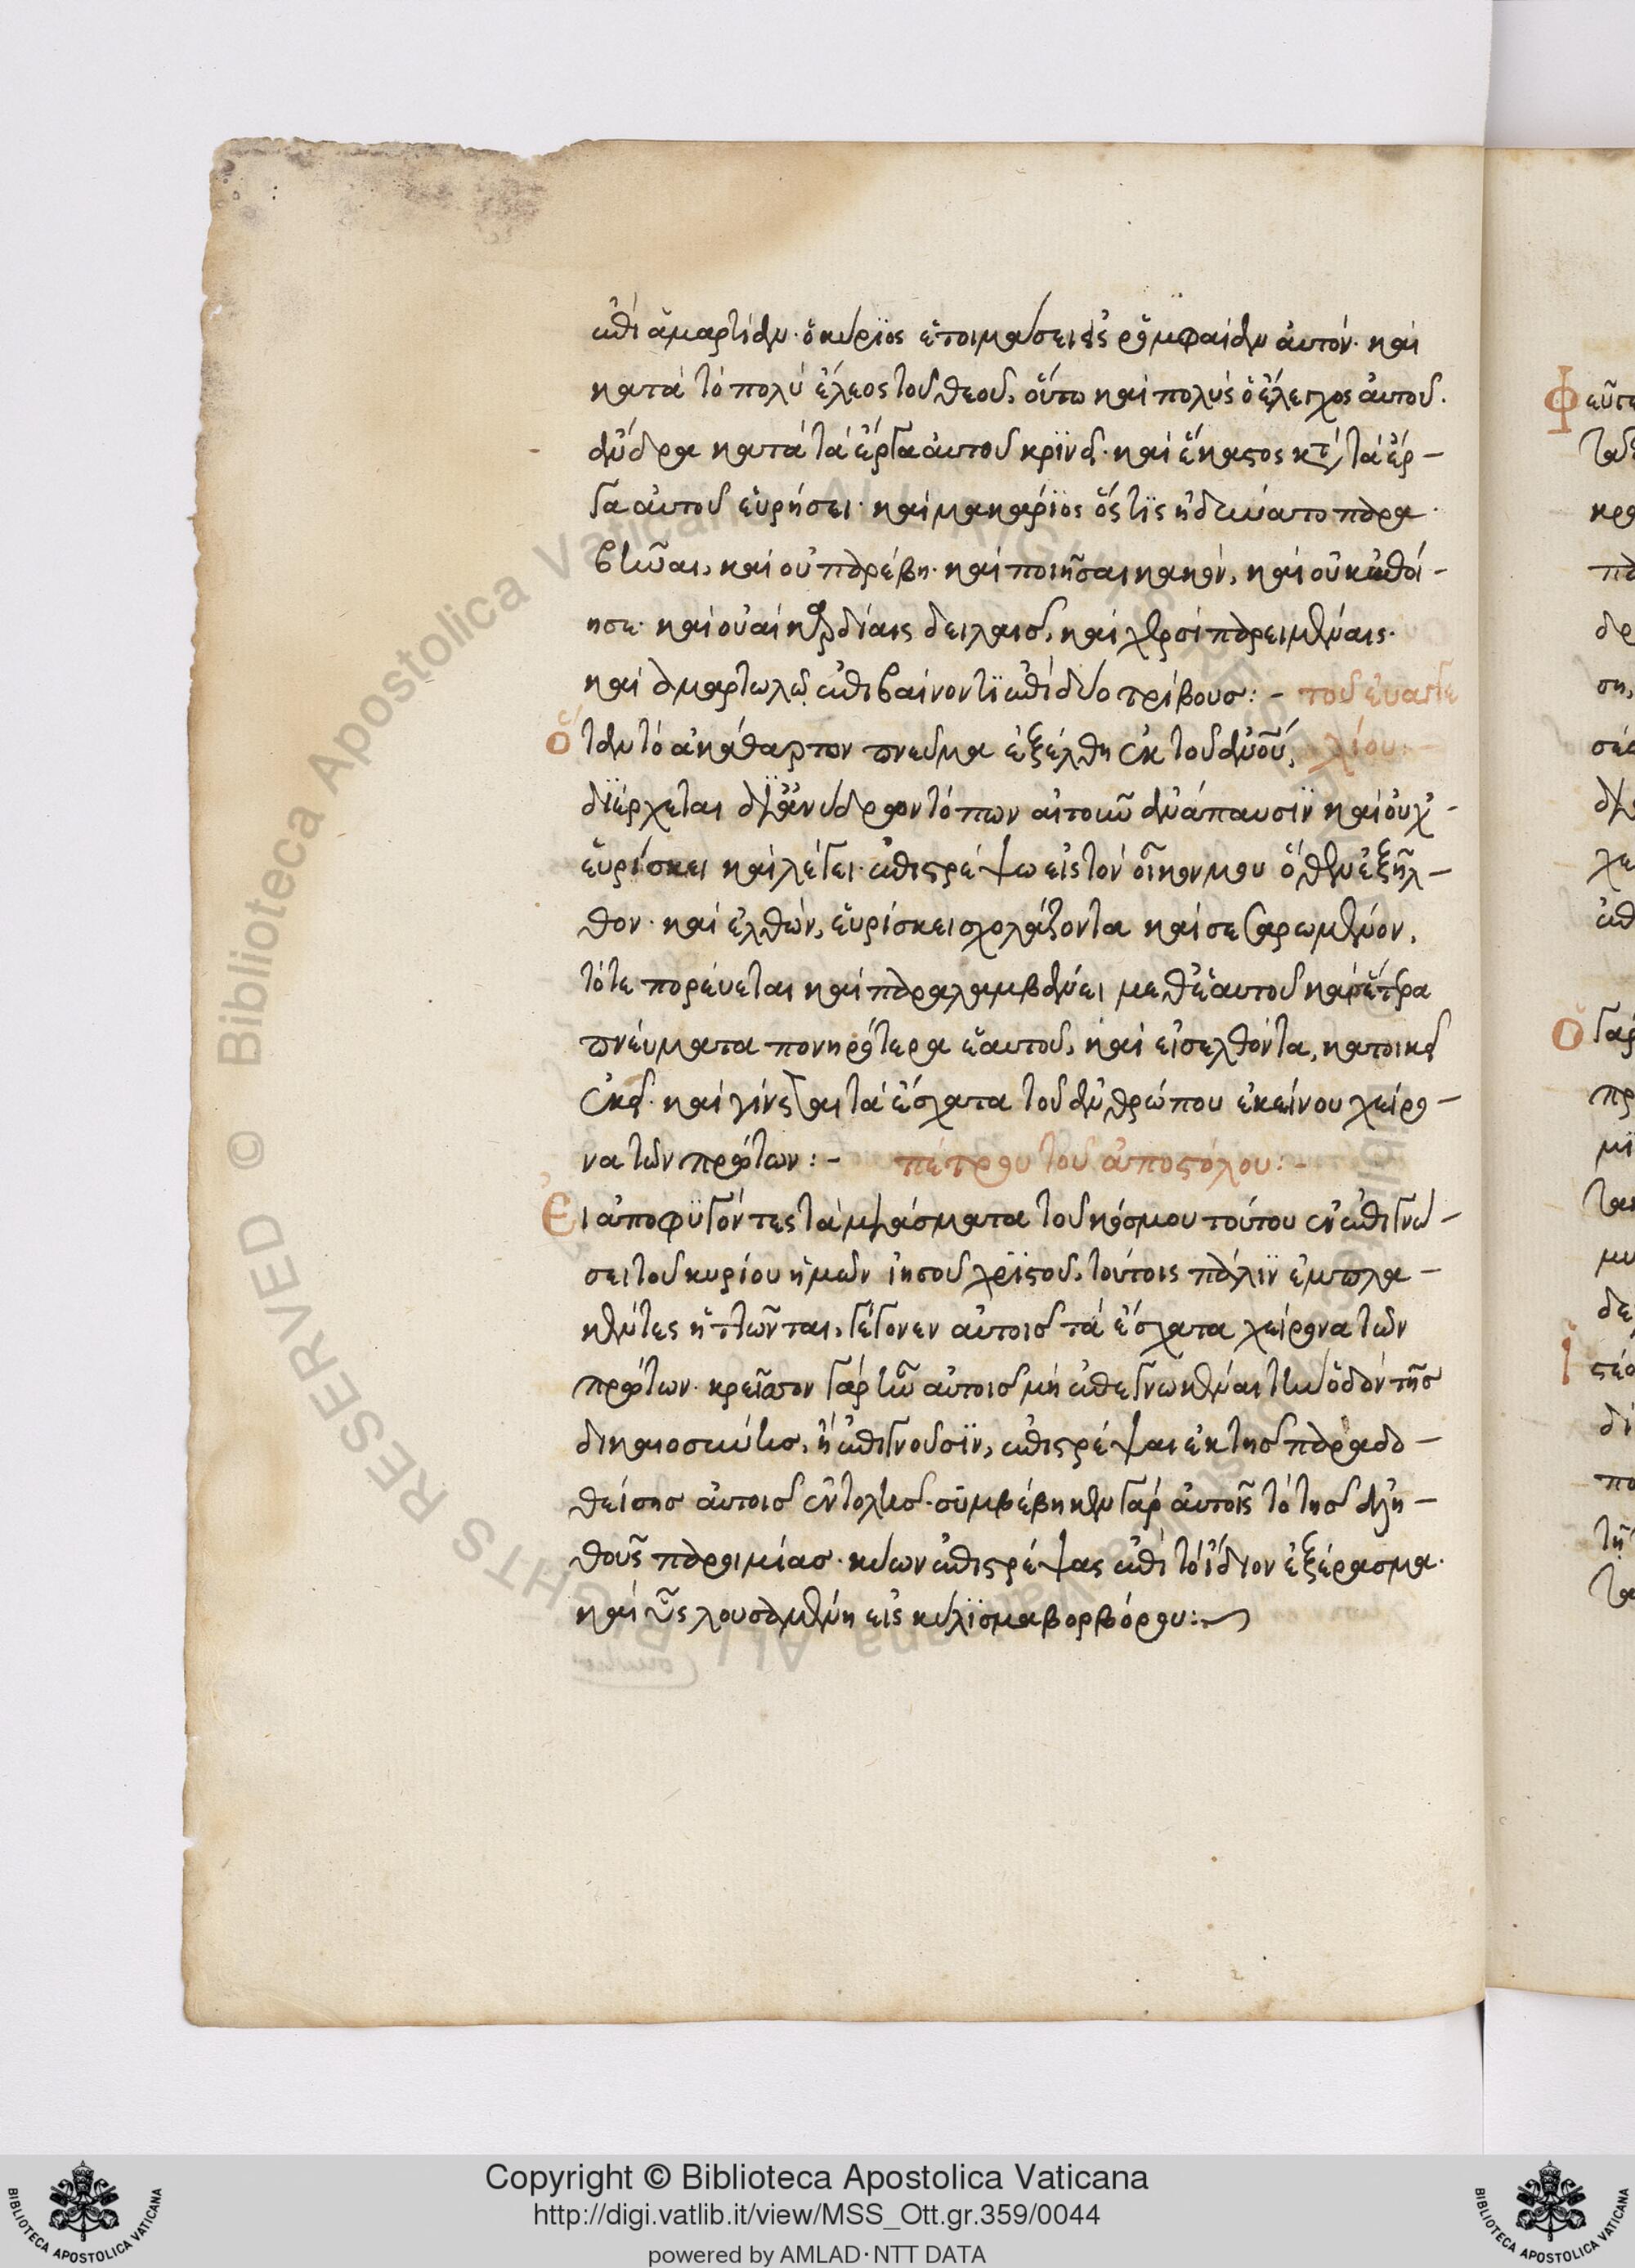 ἐπὶ ἁμαρτίαν· ὁ κύριος ἑτοιμάσει εἰς ῥομφαίαν αὐτόν· καὶ
κατὰ τὸ πολὺ ἔλεος τοῦ θεοῦ, οὕτω καὶ πολὺς ὁ ἔλεγχος αὐτοῦ.
ἄνδρα κατὰ τὰ ἔργα αὐτοῦ κρινεῖ· καὶ ἕκαστος κατὰ τὰ ἔρ-
γα αὐτοῦ εὑρήσει· καὶ μακάριος ὅστις ἠδύνατο παρα
βῆναι, καὶ οὐ παρέβη· καὶ ποιῆσαι κακόν, καὶ οὐκ ἐποί-
ησε· καὶ οὐαὶ καρδίαις δειλαῖς, καὶ χερσὶ παρειμέναις·
καὶ ἁμαρτωλῷ ἐπιβαίνοντι ἐπὶ δύο τρίβους:- τοῦ εὐαγγε
Ὅταν τὸ ἀκάθαρτον πνεῦμα ἐξέλθῃ ἐκ τοῦ ἀνοῦ, λίου:-
διέρχεται δι' ἀνύδρων τόπων αἰτοῦν ἀνάπαυσιν καὶ οὐχ-
εὑρίσκει καὶ λέγει· ἐπιστρέψω εἰς τὸν οἶκον μου ὅθεν ἐξῆλ-
θον· καὶ ἐλθών, εὑρίσκει σχολάζοντα καὶ σεσαρωμένον,
τότε πορεύεται καὶ παραλαμβάνει μεθ' ἑαυτοῦ καὶ ἕτερα
πνεύματα πονηρότερα ἑαυτοῦ, καὶ εἰσελθόντα, κατοικεῖ
ἐκεῖ· καὶ γίνεται τὰ ἔσχατα τοῦ ἀνθρώπου ἐκείνου χείρο-
να τῶν πρώτων:- πέτρου τοῦ ἀποστόλου:-
Εἰ ἀποφυγόντες τὰ μιάσματα τοῦ κόσμου τούτου ἐν ἐπιγνώ-
σει τοῦ κυρίου ἡμῶν ἰησοῦ χριστοῦ, τούτοις πάλιν ἐμπλα-
κέντες ἡττῶνται, γέγονεν αὐτοῖς τὰ ἔσχατα χείρονα τῶν
πρώτων· κρεῖττον γὰρ ἦν αὐτοῖς μὴ ἐπεγνωκέναι τὴν ὁδὸν τῆς
δικαιοσύνης, ἢ ἐπιγνοῦσιν, ἐπιστρέψαι ἐκ τῆς παραδο-
θείσης αὐτοῖς ἐντολῆς· συμβέβηκεν γὰρ αὐτοῖς τὸ τῆς ἀλη-
θοῦς παροιμίας· κύων ἐπιστρέψας ἐπὶ τὸ ἴδιον ἐξέρασμα·
καὶ ὗς λουσαμένη εἰς κύλισμα βορβόρου:-
Copyright © Biblioteca Apostolica Vaticana
http://digi.vatlib.it/view/MSS_Ott.gr.359/0044
powered by AMLAD·NTT DATA